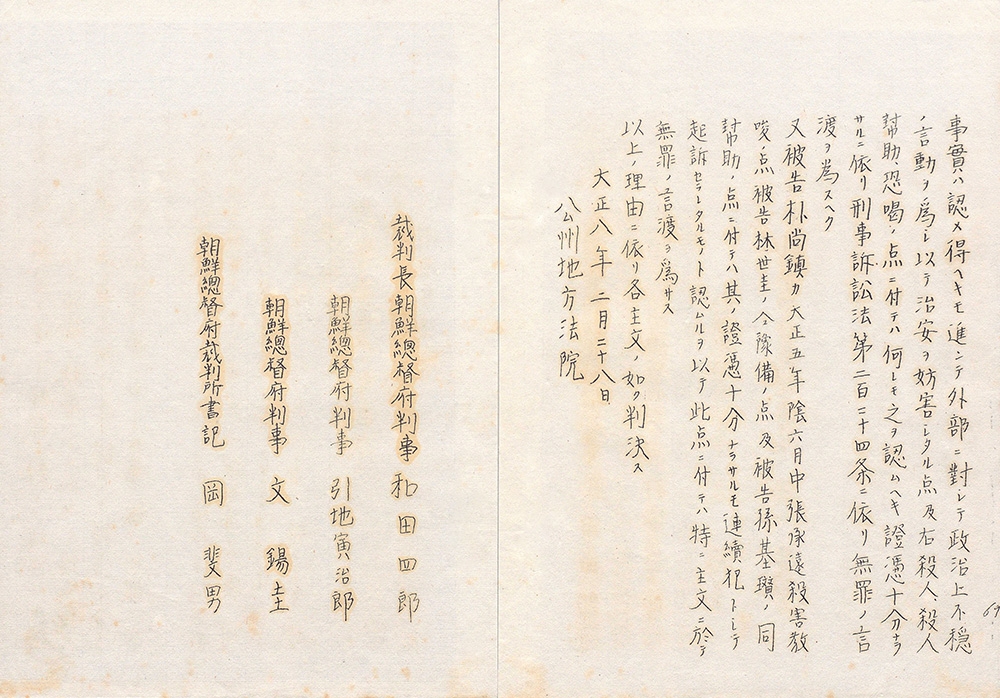 事實ハ認メ得ヘキモ進ンテ外部ニ對シテ政治上不穩
ノ言動ヲ爲シ以テ治安ヲ妨害シタル点及右殺人、殺人
幇助、恐喝ノ点ニ付テハ何レモ之ヲ認ムヘキ證憑十分ナラ
サルニ依リ刑事訴訟法第二百二十四条ニ依リ無罪ノ言
渡ヲ爲スヘク
又被告朴尚鎮カ大正五年陰六月中張承遠殺害教
唆ノ点被告林世圭ノ仝豫備ノ点及被告孫基瓚ノ同
幇助ノ点ニ付テハ其ノ證憑十分ナラサルモ連續犯トシテ
起訴セラレタルモノト認ムルヲ以テ此点ニ付テハ特ニ主文ニ於テ
無罪ノ言渡ヲ爲サス
以上ノ理由ニ依リ各主文ノ如ク判決ス
大正八年二月二十八日
公州地方法院
裁判長朝鮮總督府判事 和田四郎
朝鮮總督府判事 引地寅治郎
朝鮮總督府判事 文 錫圭
朝鮮總督府裁判所書記 岡 斐男